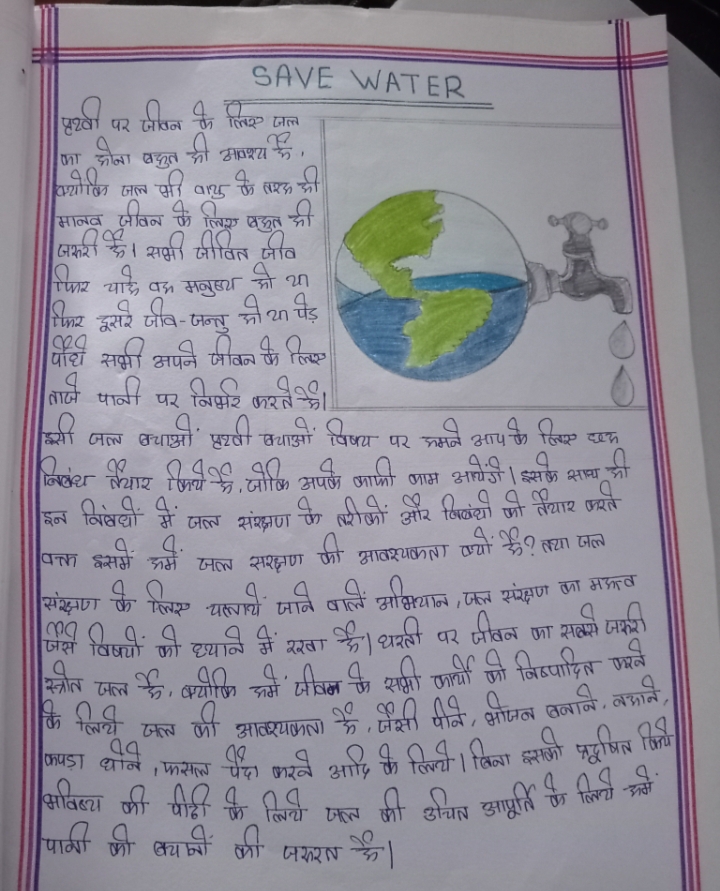 SAVE WATER
पृथ्वी पर जीवन के लिए जल
का होना बहुत ही आवश्य है,
क्योकि जल भी वायु के तरह ही
मानव जीवन के लिए बहुत ही
जरूरी है। सभी जीवित जीव
फिर चाहे वह मनुष्य हो या
फिर दूसरे जीव-जन्तु हो या पेड़
पौधे सभी अपने जीवन के लिए
ताजे पानी पर निर्भर करते है।
इसी जल बचाओं पृथ्वी बचाओं विषय पर हमने आप के लिए
निबंध तैयार किये है, जोकि अपके काफी काम आयेंगे। इसके साथ ही
इन निबंधों में जल संरक्षण के तरीकों और निबंधो को तैयार करते
वक्त इसमें हमें जल सरक्षण की आवश्यकता क्यों है? क्या जल
संरक्षण के लिए चलायें जाने वालें अभियान, जल संरक्षण का महत्व
जैसे विषयों को ध्याने में रखा है। धरती पर जीवन का सबसे जरूरी
स्त्रोत जल है, क्योकि हमें जीवन के सभी कार्यो को निष्पादित करने
के लिये जल की आवश्यकता है, जैसी पीने, भोजन बनाने, नहाने,
कपड़ा धोने, फसल पैदा करने आदि के लिये। बिना इसको प्रदूषित किये
भविष्य की पीढी के लिये जल की उचित आपूर्ति के लिये हमें
पानी को बचाने की जरूरत है।